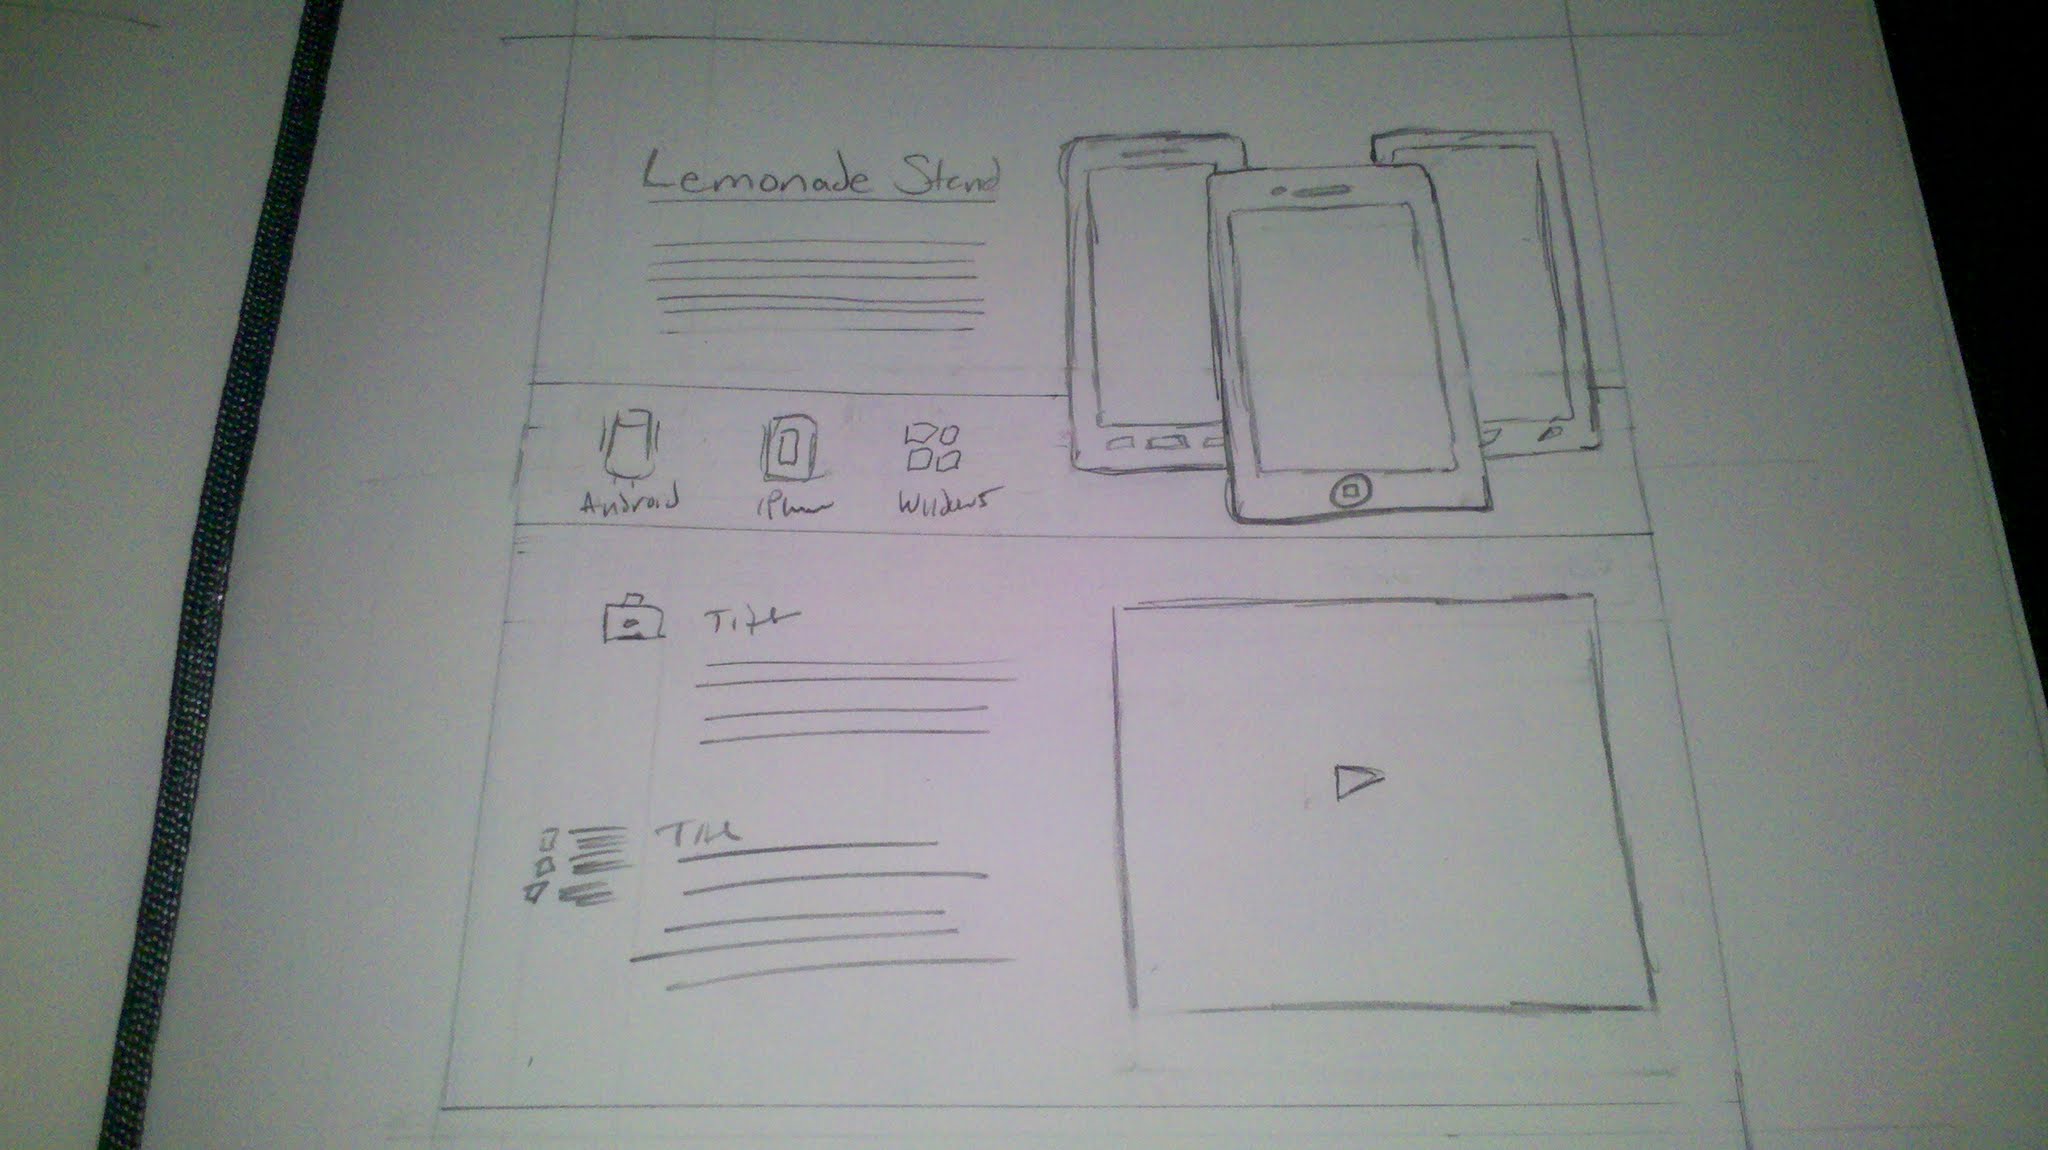 Lemonade Stand
Android
iPhone
Windows
Title
Title